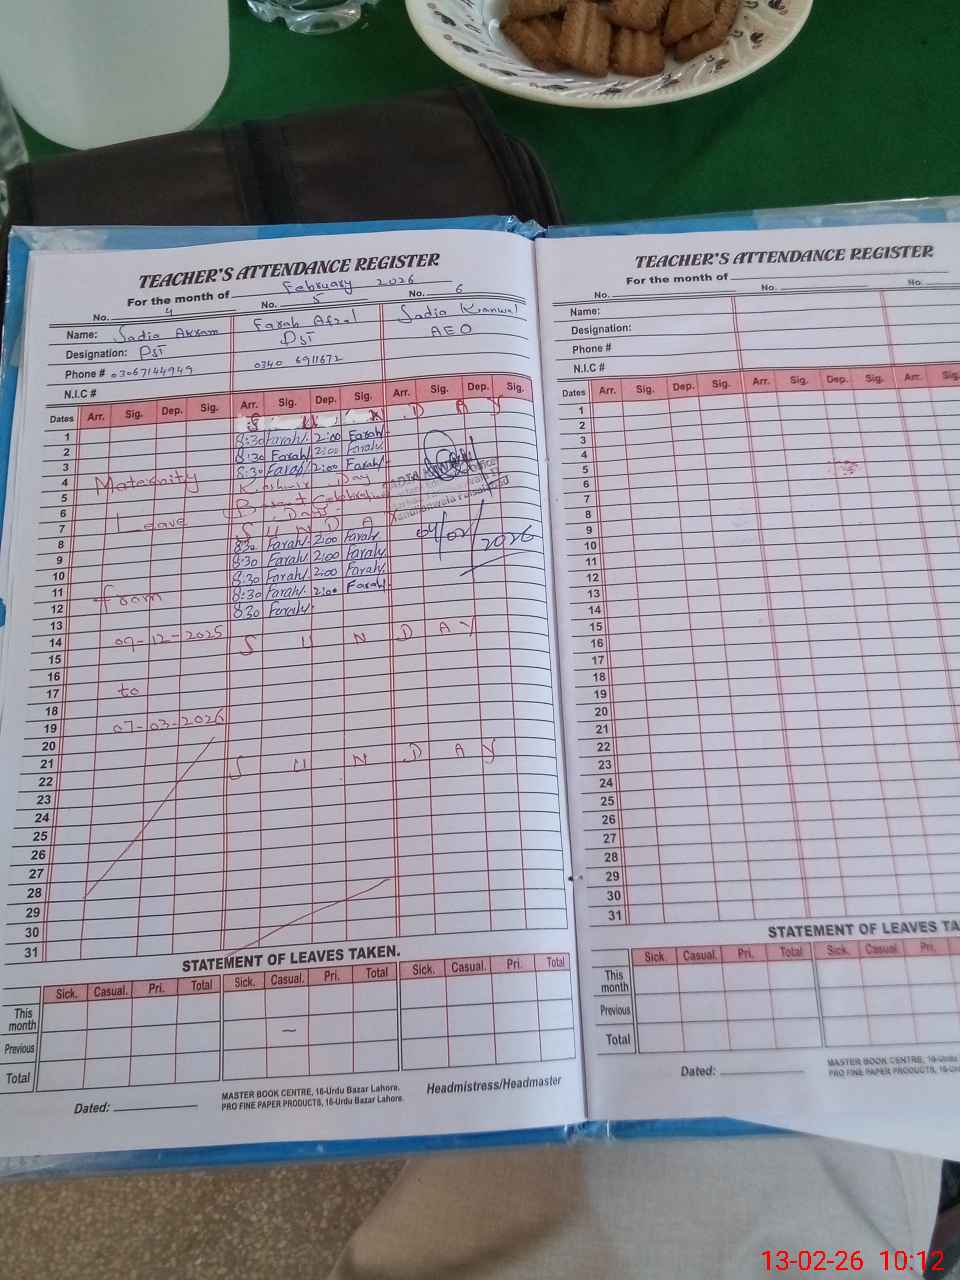 TEACHER'S ATTENDANCE REGISTER
For the month of February 2026
No. 4 No. 5 No. 6
Name: Sadia Akram Farah Afzal Sadia Kanwal
Designation: PST PST AEO
Phone # 03067144949 0340 6911672
N.I.C #
Dates Arr. Sig. Dep. Sig. Arr. Sig. Dep. Sig. Arr. Sig. Dep. Sig.
1 S U N D A Y
2 8:30 Farah 2:00 Farah
3 8:30 Farah 2:00 Farah
4 Maternity 8:30 Farah 2:00 Farah
5 Kashmir Day
6 Leave Basant Celebration
7 Days
8 S U N D A Y 04/02/2026
9 8:30 Farah 2:00 Farah
10 8:30 Farah 2:00 Farah
11 from 8:30 Farah 2:00 Farah
12 8:30 Farah 2:00 Farah
13 8:30 Farah
14 09-12-2025
15 S U N D A Y
16
17 to
18
19 07-03-2026
20
21
22 S U N D A Y
23
24
25
26
27
28
29
30
31
STATEMENT OF LEAVES TAKEN.
Sick. Casual. Pri. Total Sick. Casual. Pri. Total Sick. Casual. Pri. Total
This month
Previous
Total
Dated:
MASTER BOOK CENTRE, 16-Urdu Bazar Lahore.
PRO FINE PAPER PRODUCTS, 16-Urdu Bazar Lahore.
Headmistress/Headmaster
TEACHER'S ATTENDANCE REGISTER
For the month of
No. No. No.
Name:
Designation:
Phone #
N.I.C #
Dates Arr. Sig. Dep. Sig. Arr. Sig. Dep. Sig. Arr. Sig.
1
2
3
4
5
6
7
8
9
10
11
12
13
14
15
16
17
18
19
20
21
22
23
24
25
26
27
28
29
30
31
STATEMENT OF LEAVES TA
Sick. Casual. Pri. Total Sick. Casual Pri.
This month
Previous
Total
Dated:
MASTER BOOK CENTRE, 16-Urdu
PRO FINE PAPER PRODUCTS, 16-Ur
13-02-26 10:12